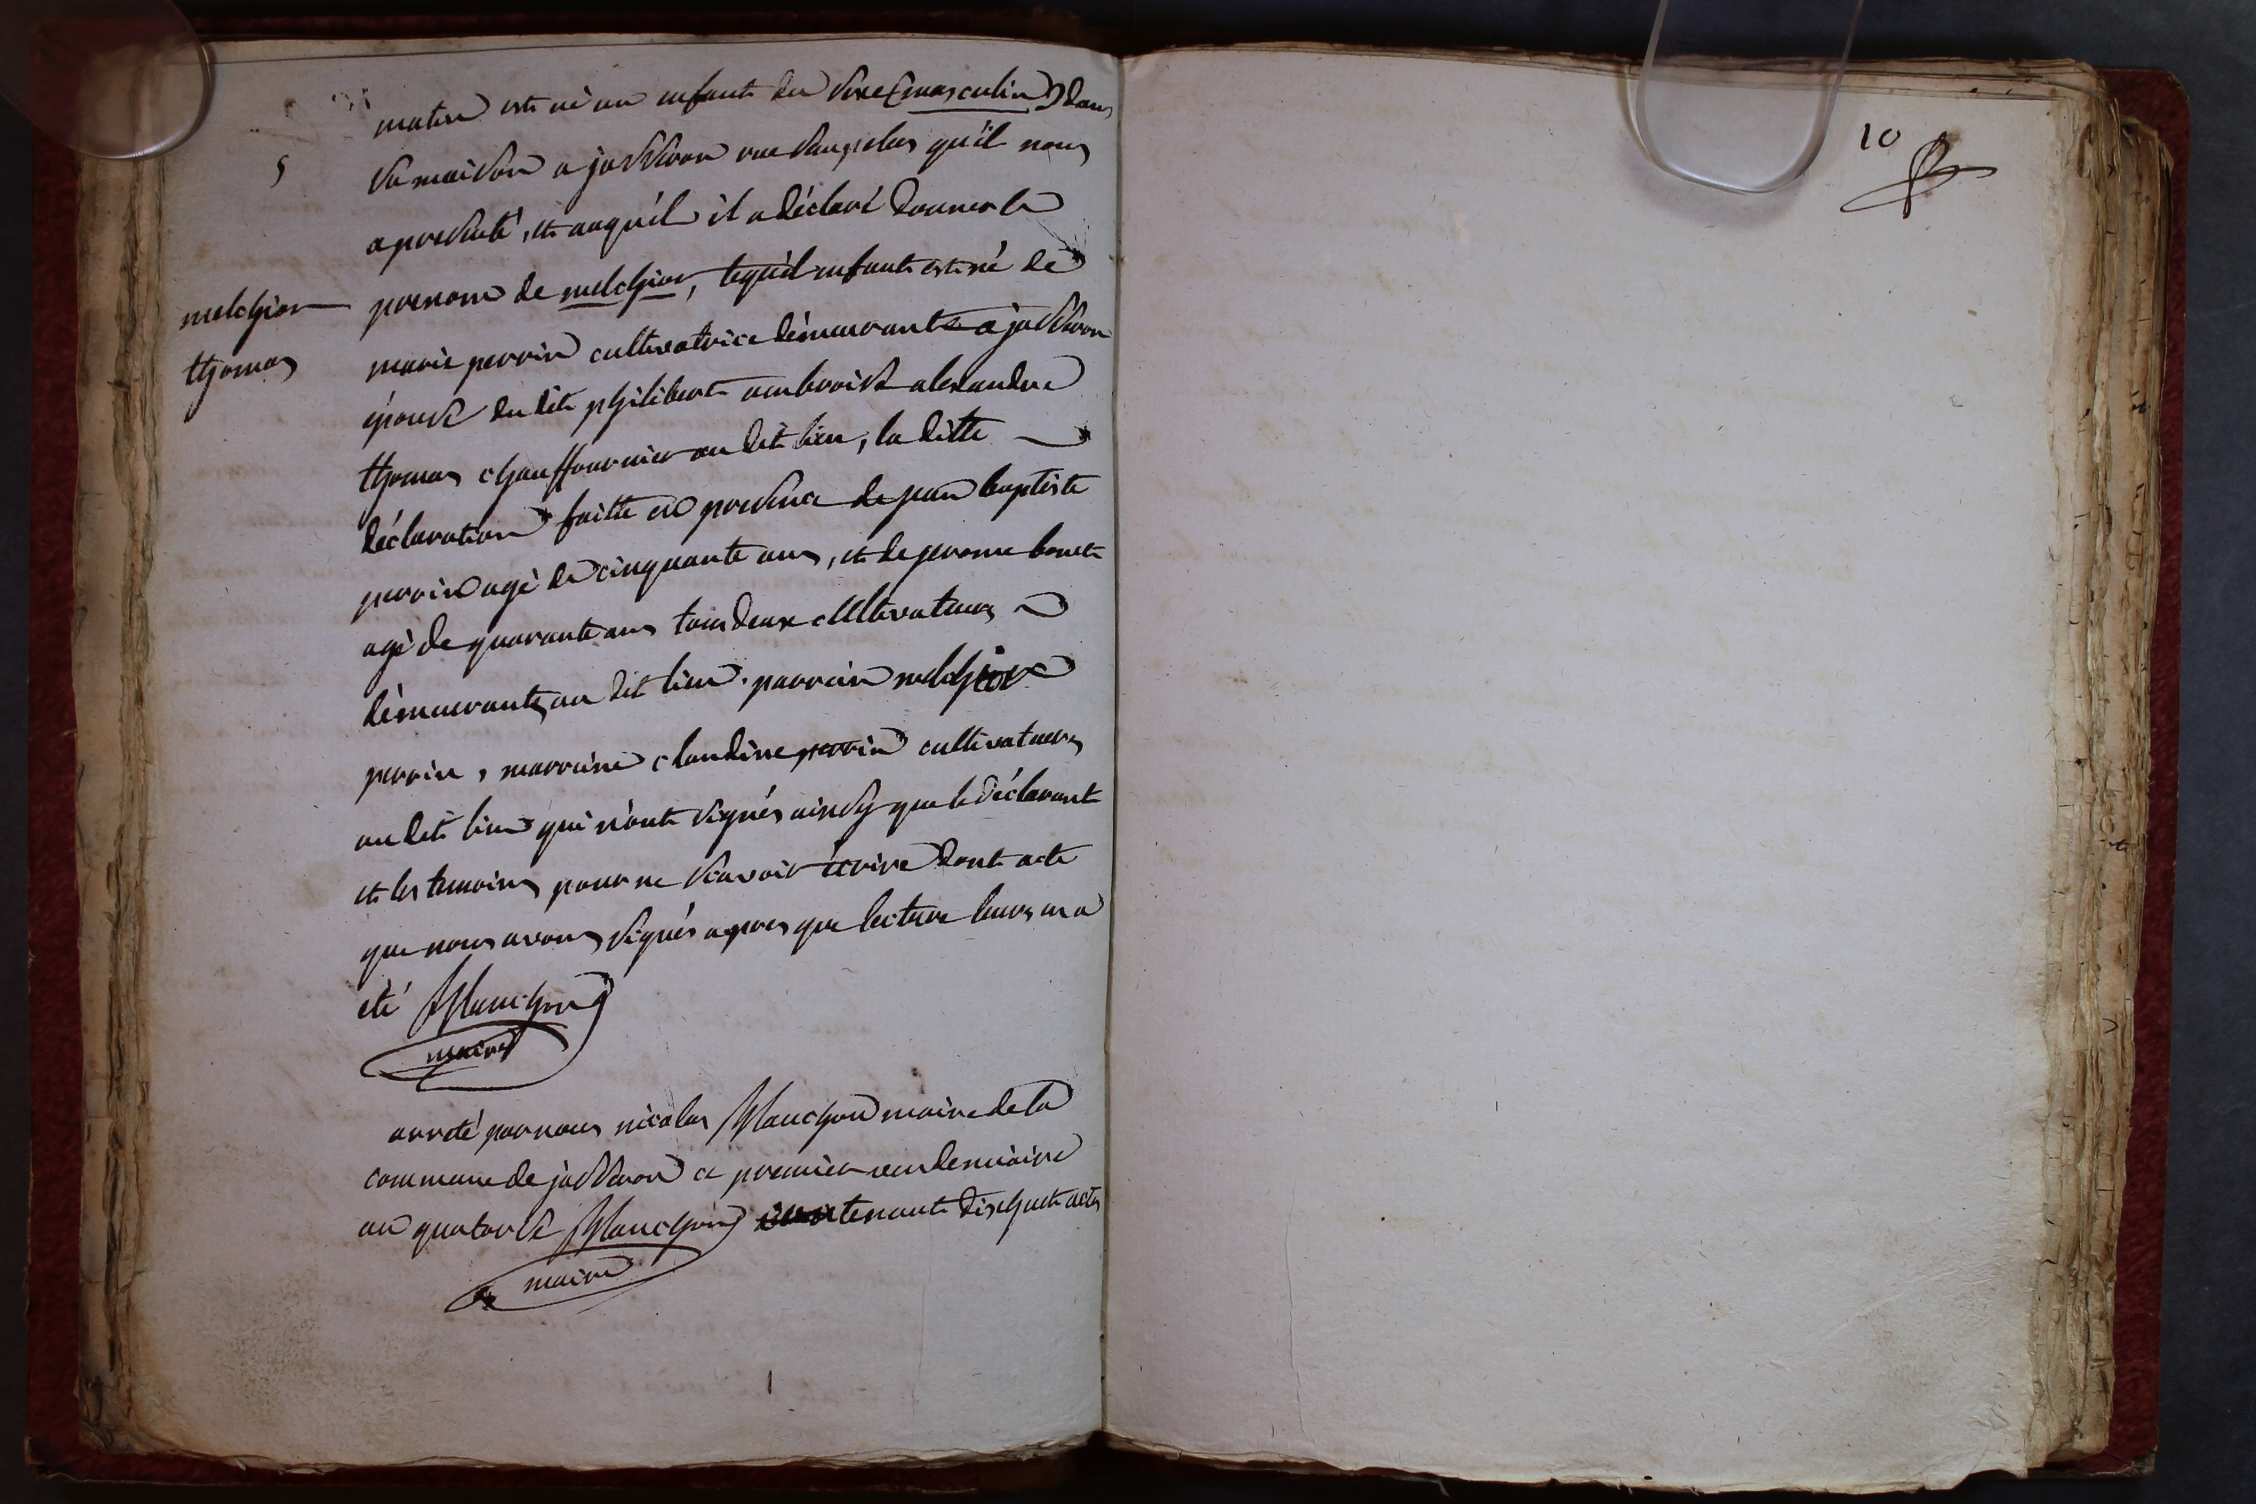 matin est né un enfant du sexe (masculin) dans
5
sa maison a jasseron rue qu'il nous
a presenté, et auquél il a déclaré donner le
melchior
prenom de melchior, lequél enfant est né de
thomas
marie perrin cultivatrice démeurante a jasseron
épouse du dit philibert ambroise alexandre
thomas chauffournier au dit lieu, la ditte
déclaration faitte en presence de jean baptiste
perrin agé de cinquante ans, et de jerome bouet
agé de quarante ans tous deux cultivateurs
démeurants au dit lieu. parrain melchior
perrin, marraine claudine perrin cultivateurs
au dit lieu qui n'ont signés ainsy que le déclarant
et les temoins pour ne scavoir écrire dont acte
que nous avons signés apres que lecture leurs en a
été Planchon
maire
arreté par nous nicolas Planchon maire de la
commune de jasseron ce premier vendemiaire
an quatorze Planchon contenant dixhuit actes
maire
10